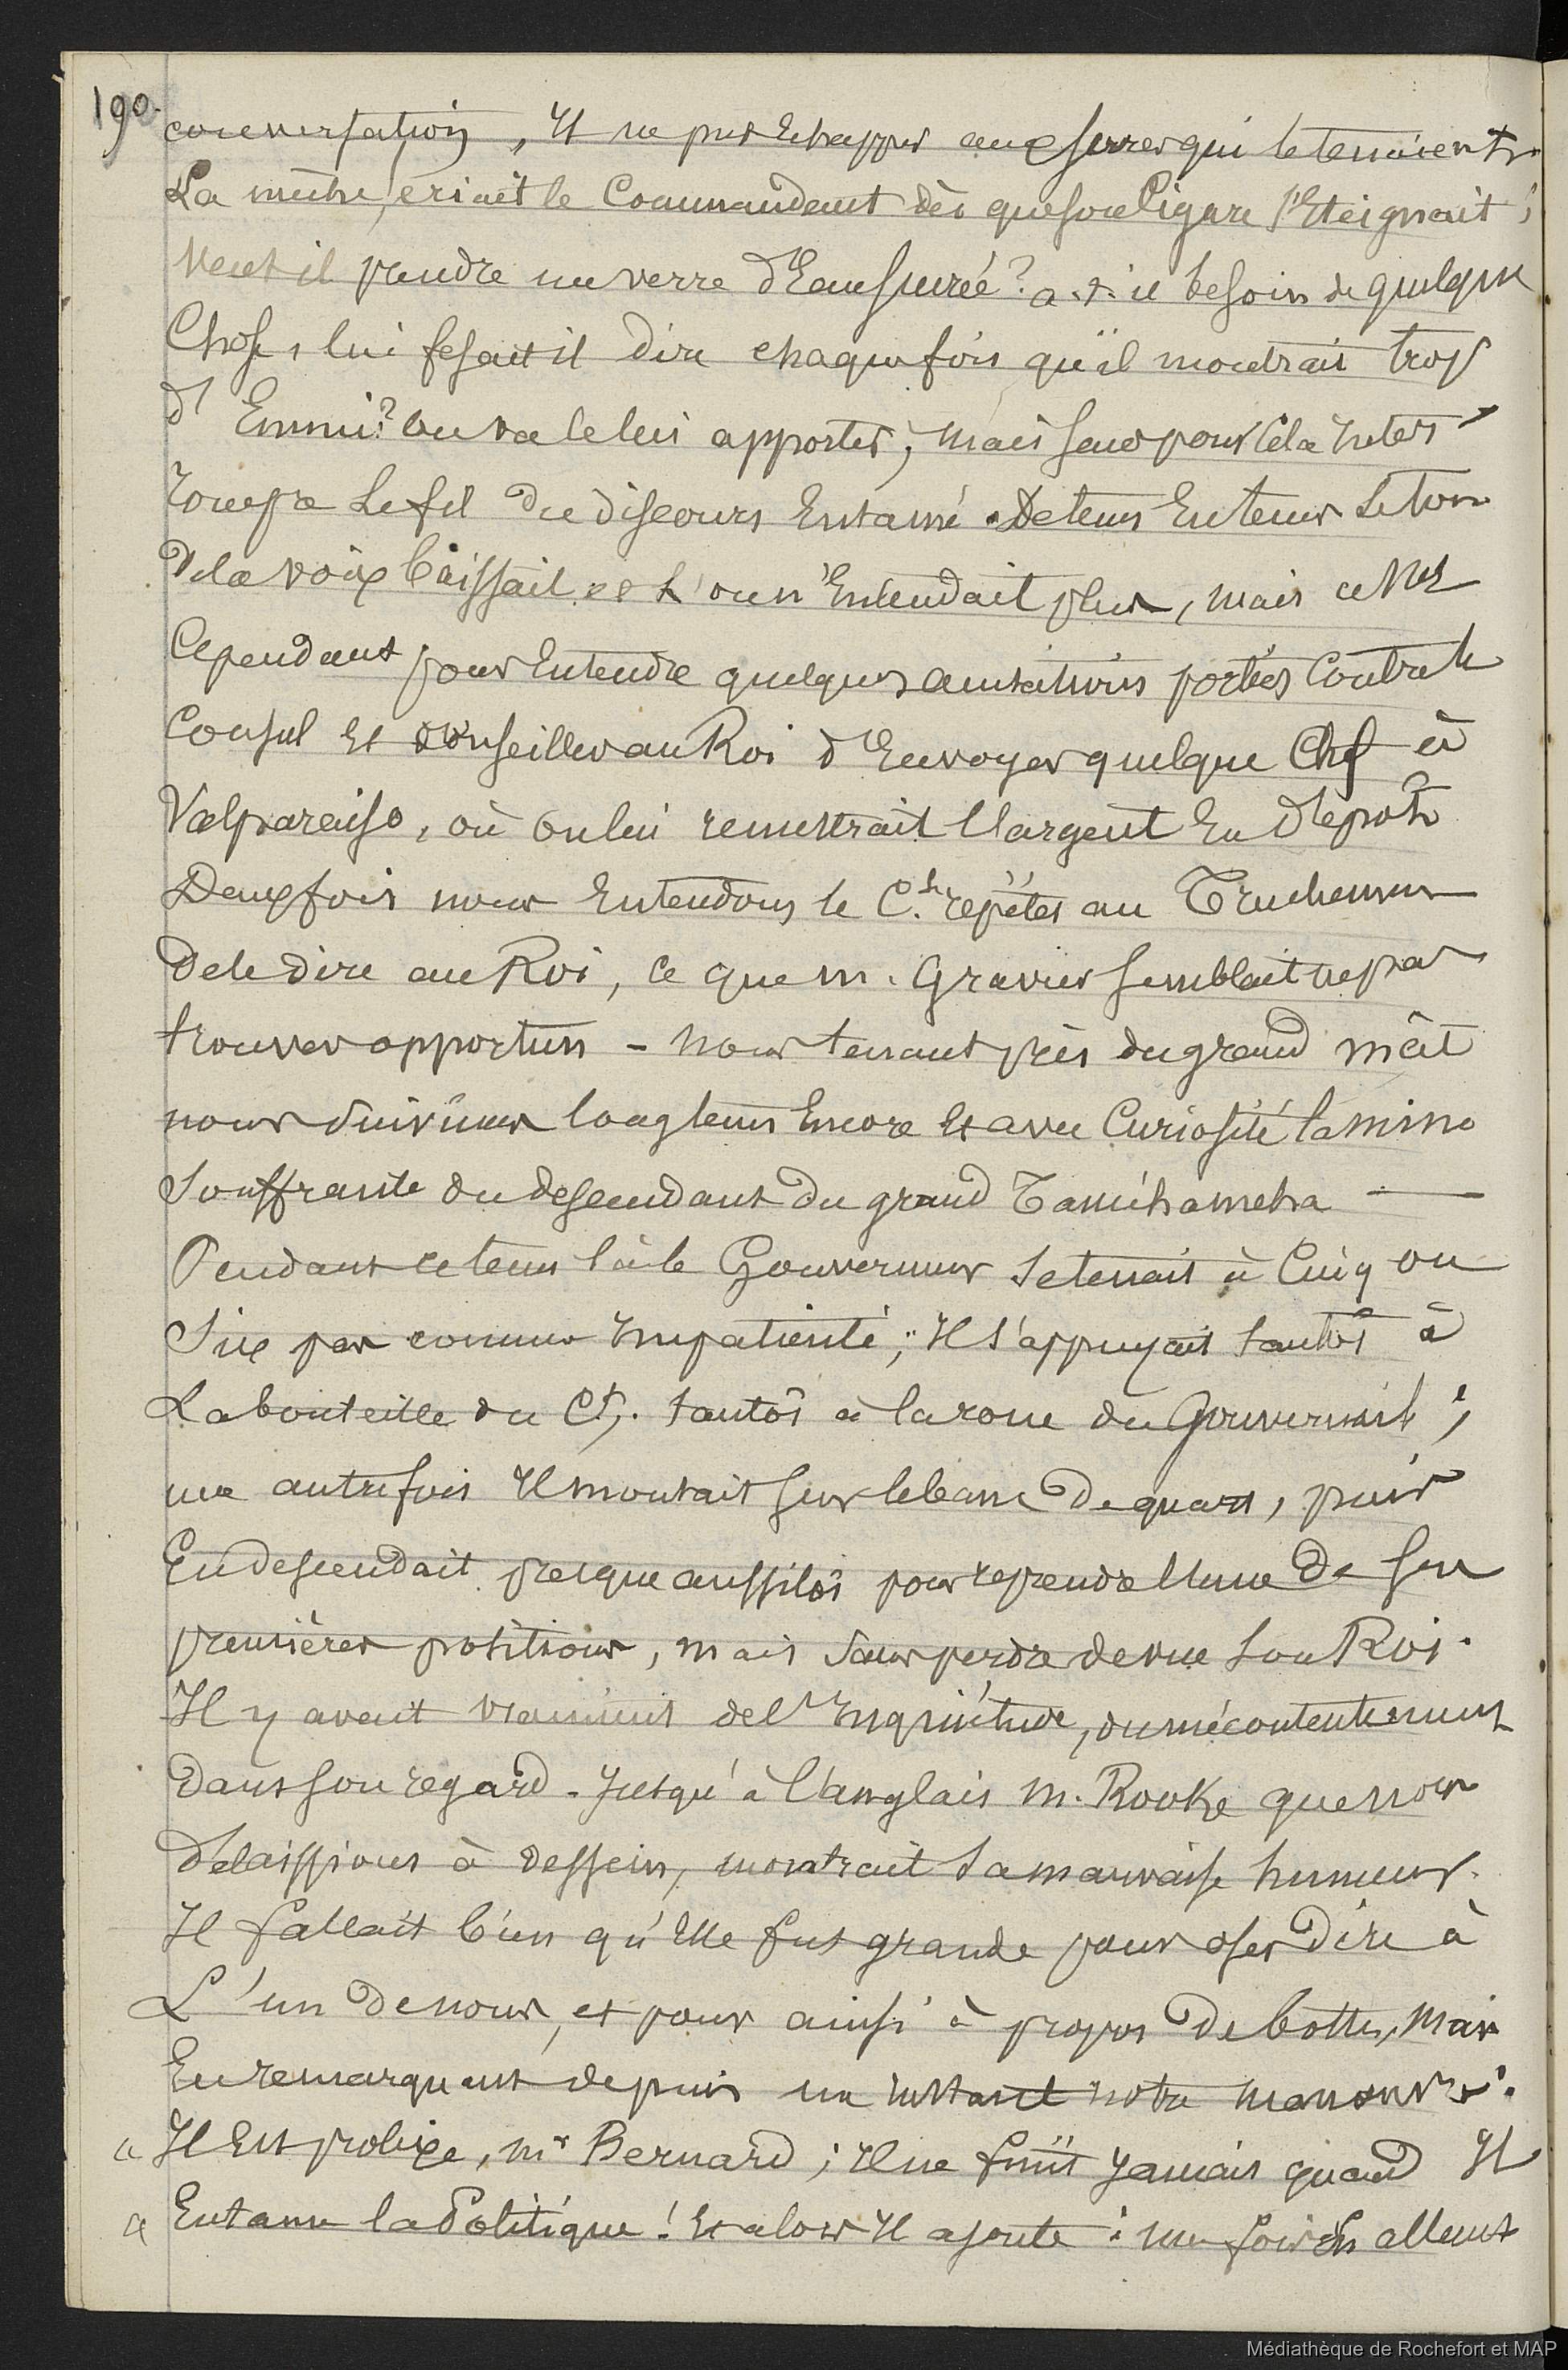 190.
conversation, Il ne put Echapper aux serres qui le tenaient.
La mêche, criait le Commandant dès que son Cigare s'Eteignait ;
veut il prendre un verre d'Eau sucrée ? a.t.il besoin de quelque
Chose, lui fesait il dire chaque fois qu'il montrait trop
d'Ennui ? On va le lui apporter ; mais sans pour cela Inter
rompre Le fil du discours Entamé. De tems En tems Le ton
de la voix baissait et L'on n'Entendait plus, mais
Cependant pour Entendre quelques accusations portées Contre le
Consul Et conseiller au Roi d'Envoyer quelque Chef à
Valparaiso, où on lui remettrait l'argent En dépôt.
Deux fois nous Entendons le C.t répéter au Truchement
de le dire au Roi, ce que m. Gravier semblait ne pas
trouver opportun - nous tenant près du grand mât
nous suivîmes longtems Encore Et avec Curiosité la mine
souffrante du descendant du grand Taméhameha —
Pendant ce tems là le Gouverneur se tenait à Cinq ou
Six pas comme Impatienté ; Il s'appuyait tantôt à
La bouteille du Ct, tantôt à la roue du Gouvernail ;
une autre fois Il montait sur le banc de quart, puis
En descendait presque aussitôt pour reprendre l'une de ses
premières positions, mais sans perdre de vue son Roi.
Il y avait vraiment de l'Inquiétude, du mécontentement
dans son regard. Jusqu'à l'anglais M. Rooke que nous
délaissions à dessein, montrait sa mauvaise humeur.
Il fallait bien qu'Elle fut grande pour oser dire à
L'un de nous, et pour ainsi à propos de bottes, mais
En remarquant depuis un Instant notre manœuvre :
« Il Est prolixe, mr Bernard ; Il ne finit jamais quand Il
« Entame la Politique ! Et alors Il ajoute : une fois En allant